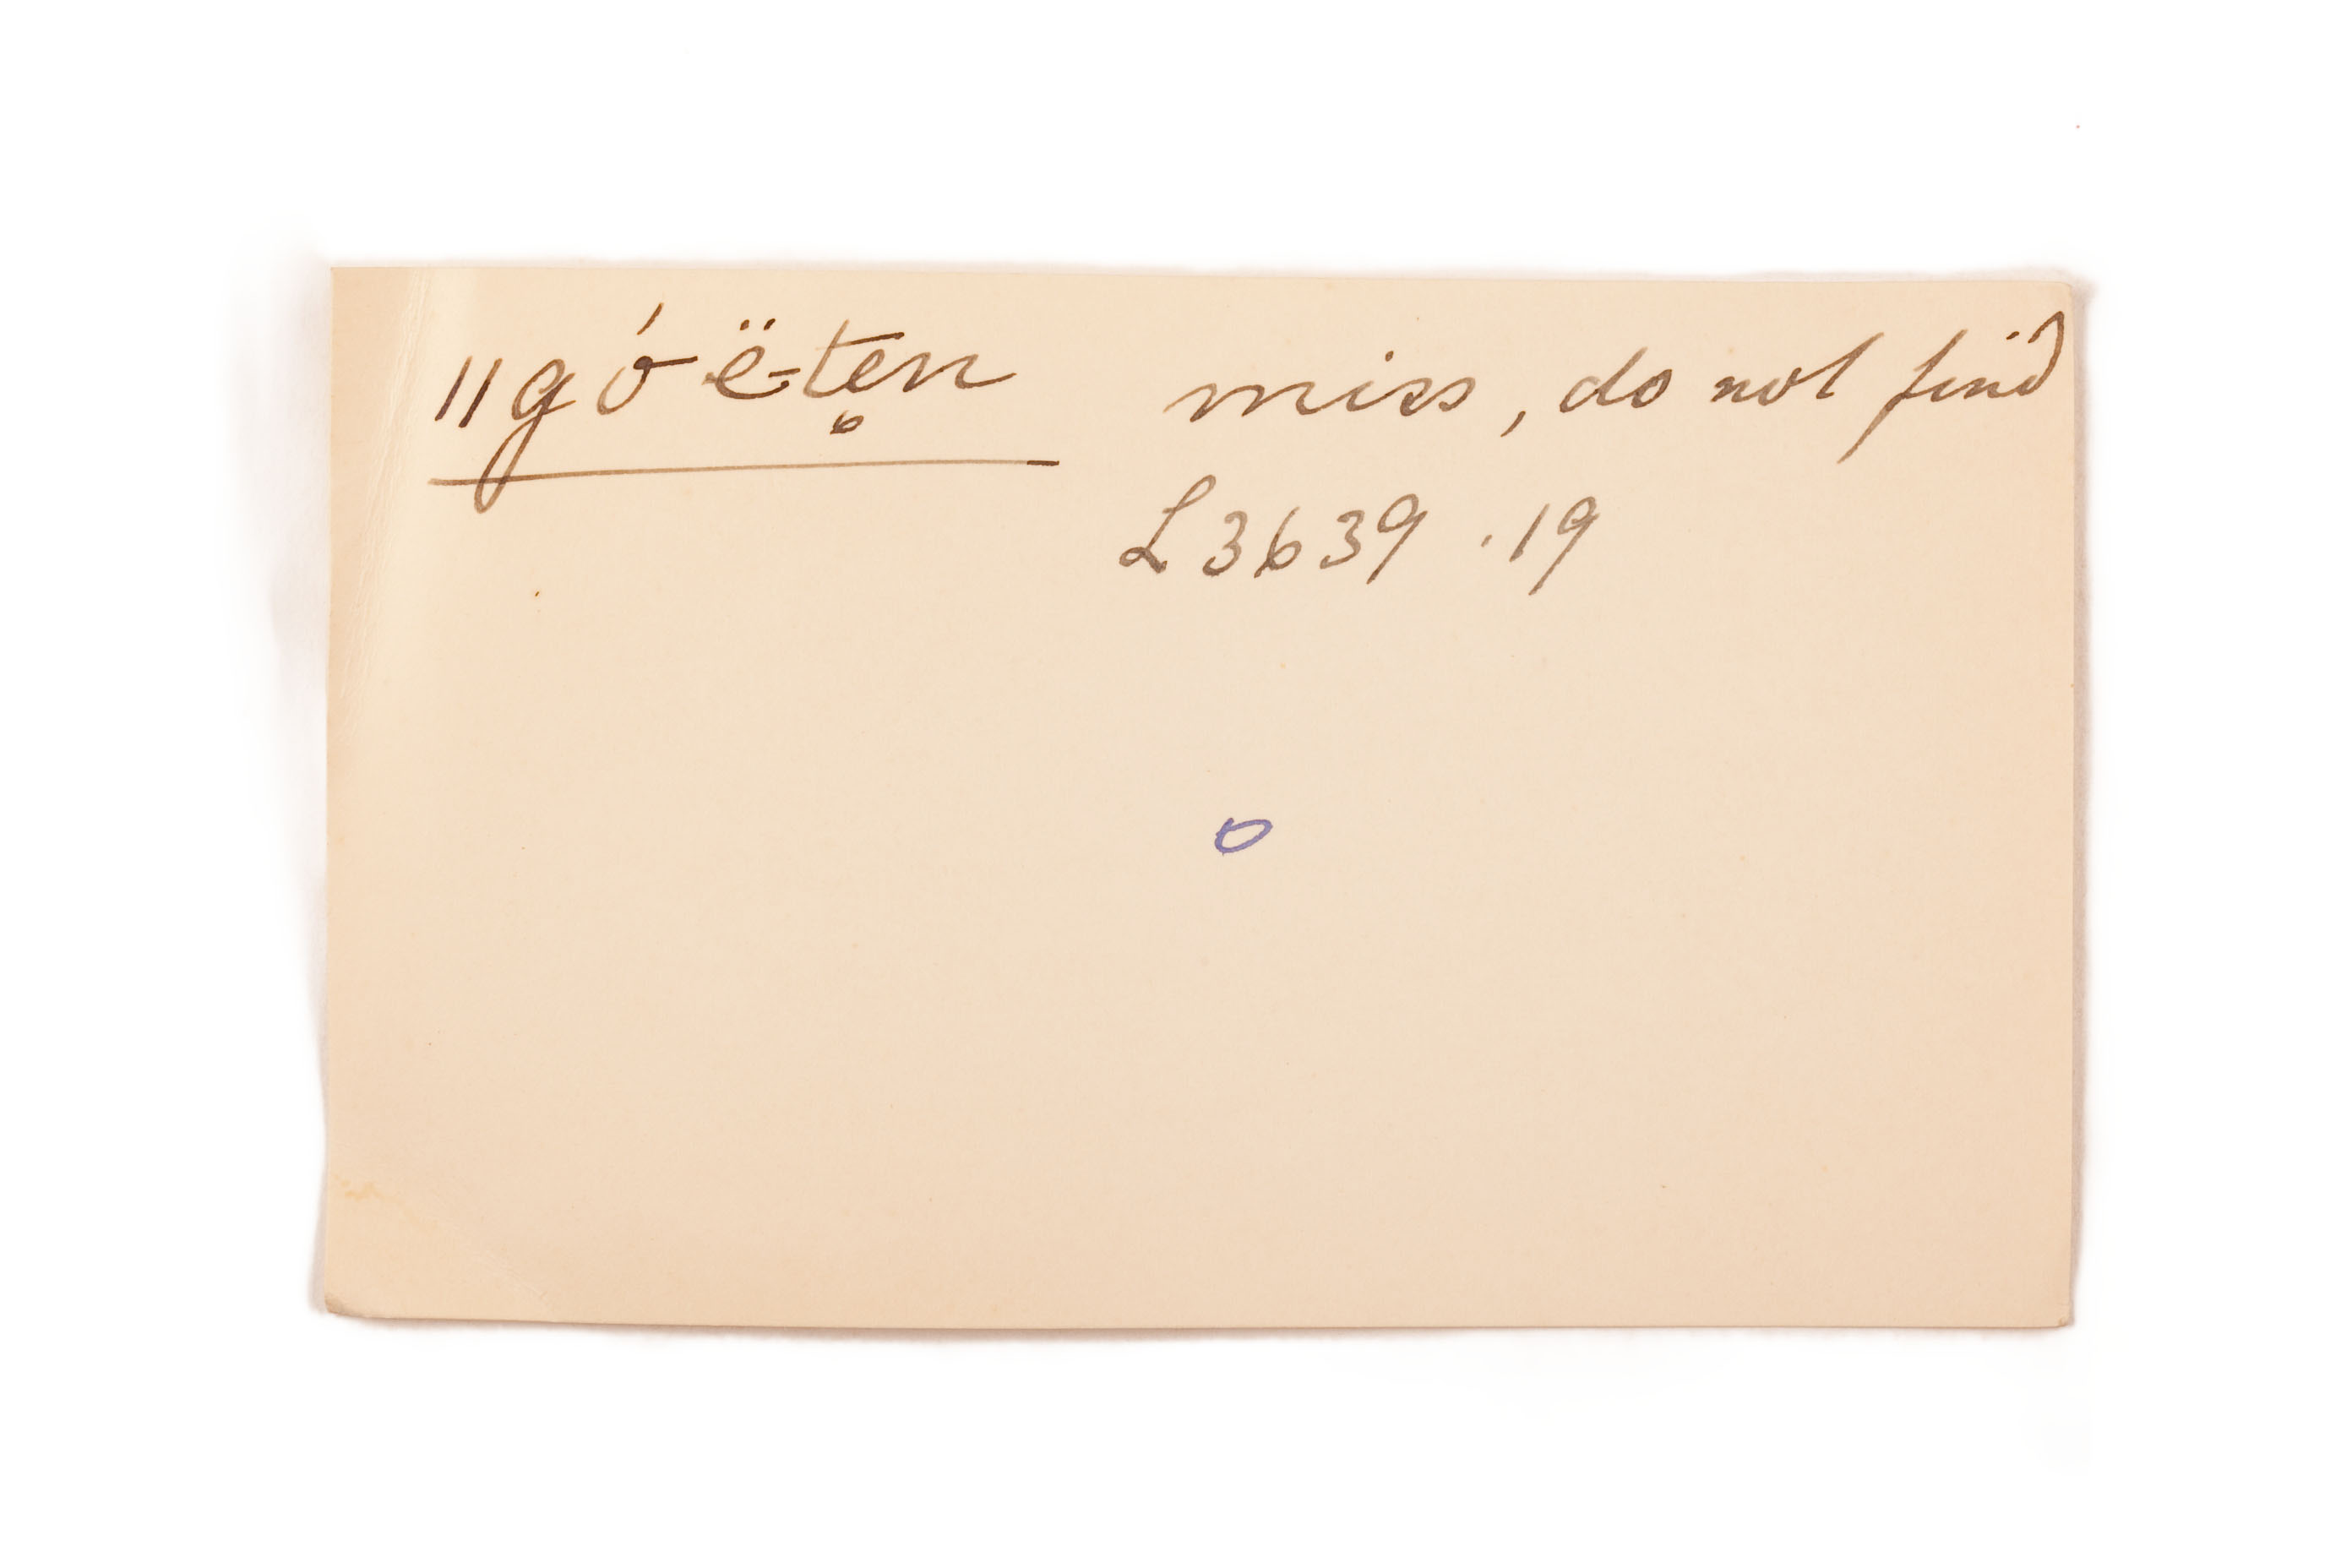 ǁgóë-t̥en miss, do not find
L3639 . 19
o